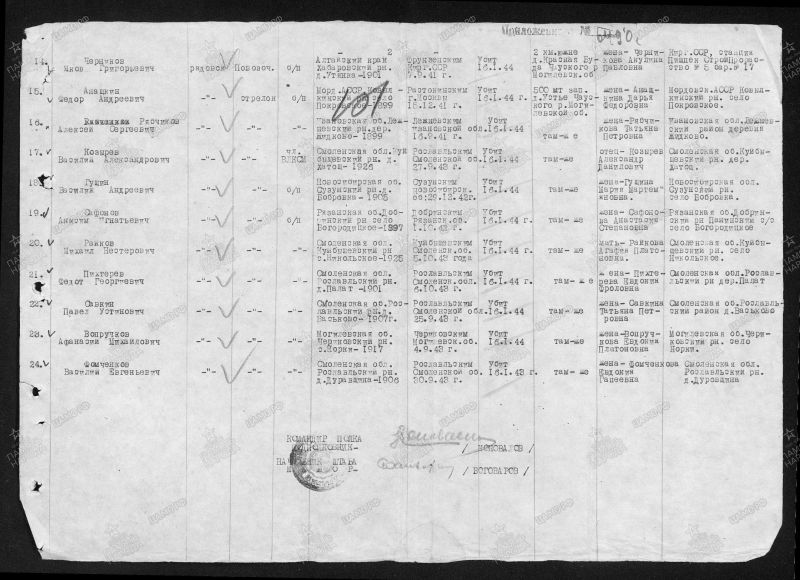 Приложение №
- 2
14. Черников Яков Григорьевич рядовой Повозоч. б/п Алтайский край Хабаровский рн. д.Утянка-1901 Фрунзенским Кирг.ССР .9.41 г. Убит 16.1.44 2 км.южне д.Красная Бу- да Чаусского р Могилевск.об жена- Черни- кова Акулина Павловна Кирг.ССР, станция Пишпек
15. Анашкин Федор Андреевич -"- стрелок б/п Морд.ССР, Покровское-1899 Ростокинским г.Москвы 16.12.41 г. Убит 16.1.44 500 мт зап. д.Устье Чаус- ского р.Моги- левской об. жена- Анаш- кина Дарья Федоровна Мордовск.АССР Ковыл- кинский рн. село Покровское.
16. Рясчиков Алексей Сергеевич -"- -"- -"- Ивановская об. рн.дер. Жидково-1899 Лежневским Ивановской об. 16.9.41 г. Убит 16.1.44 там-же жена-Рясчи- кова Татьяна Петровна Ивановская обл.Лежнев- ский район деревня Жидково.
17. Козырев Василий Александрович -"- -"- чл. ВЛКСМ Смоленская обл.Куй бышевский рн. д. Хатощ- 1926 Куйбышевским Смоленской об. 27.9.43 г. Убит 16.1.44 там-же отец- Козырев Александр Данилович Смоленская об.Куйбы- шевский рн. дер. Хатощ.
18. Гущин Василий Андреевич -"- -"- б/п Новосибирская об. Сузунский рн.д. Бобровка-1905 Сузунским Новосибирск. об:29.12.42г. Убит 16.1.44 там-же жена-Гущина Мария Мартем" яновна. Новосибирская обл. Сузунский рн. село Бобровка.
19. Сафонов Анисим Игнатьевич -"- -"- б/п Рязанская об.Доб- ринский рн село Богородицкое-1897 Добринским Рязанск.об. 1.10.42 г. Убит 16.1.44 г. там-же жена- Сафоно- ва Анастасия Степановна Рязанская об.Добрин- ский рн с/с село Богородицкое
20. Райков Михаил Нестерович -"- -"- -"- Смоленская обл. Куйбышевский рн. с.Никольское-1925 Куйбышевским Смоленск.об. 5.10.43 года Убит 16.1.44 г. там- же мать- Райкова Агафия Плато- новна. Смоленская об.Куйбы- шевский рн. село Никольское.
21. Пихтерев Федот Георгиевич -"- -"- -"- Смоленская обл. Рославльский рн. д.Палат -1901 Рославльским Смоленск.обл. 6.10.43 г. Убит 16.1.44 г. там- же жена- Пихте- рева Евдокия Фроловна Смоленская обл.Рослав- льский рн дер.Палат
22. Савкин Павел Устинович -"- -"- -"- Смоленская об.Рос- лавльский рн.д. Васьково-1907г. Рославльским Смоленской обл. 25.9.43 г. Убит 16.1.44 там-же жена- Савкина Татьяна Пет- ровна Смоленская об.Рославль- ский район д.Васьково
23. Вопручков Афанасий Михайлович -"- -"- -"- Могилевская об. Чериковский рн. с.Норки-1917 Чериковским Могилевск.об. 4.9.43 г. Убит 16.1.44 г. там-же жена-Вопруч- кова Евдокия Платоновна Могилевская об.Чери- ковский рн. село Норки.
24. Фомченков Василий Евгеньевич -"- -"- -"- Смоленская обл. Рославльский рн. д.Дуравщина-1906 Рославльским Смоленской об. 30.9.43 г. Убит 16.1.43 г. там-же жена-Фомченкова Евдокия Гапеевна Смоленская обл. Рославльский рн. д.Дуровщина
КОМАНДИР ПОЛКА
ПОДПОЛКОВНИК-
/ КОНОВАЛОВ /
НАЧАЛЬНИК ШТАБА
М А Й О Р-
/ БОГОВАРОВ /